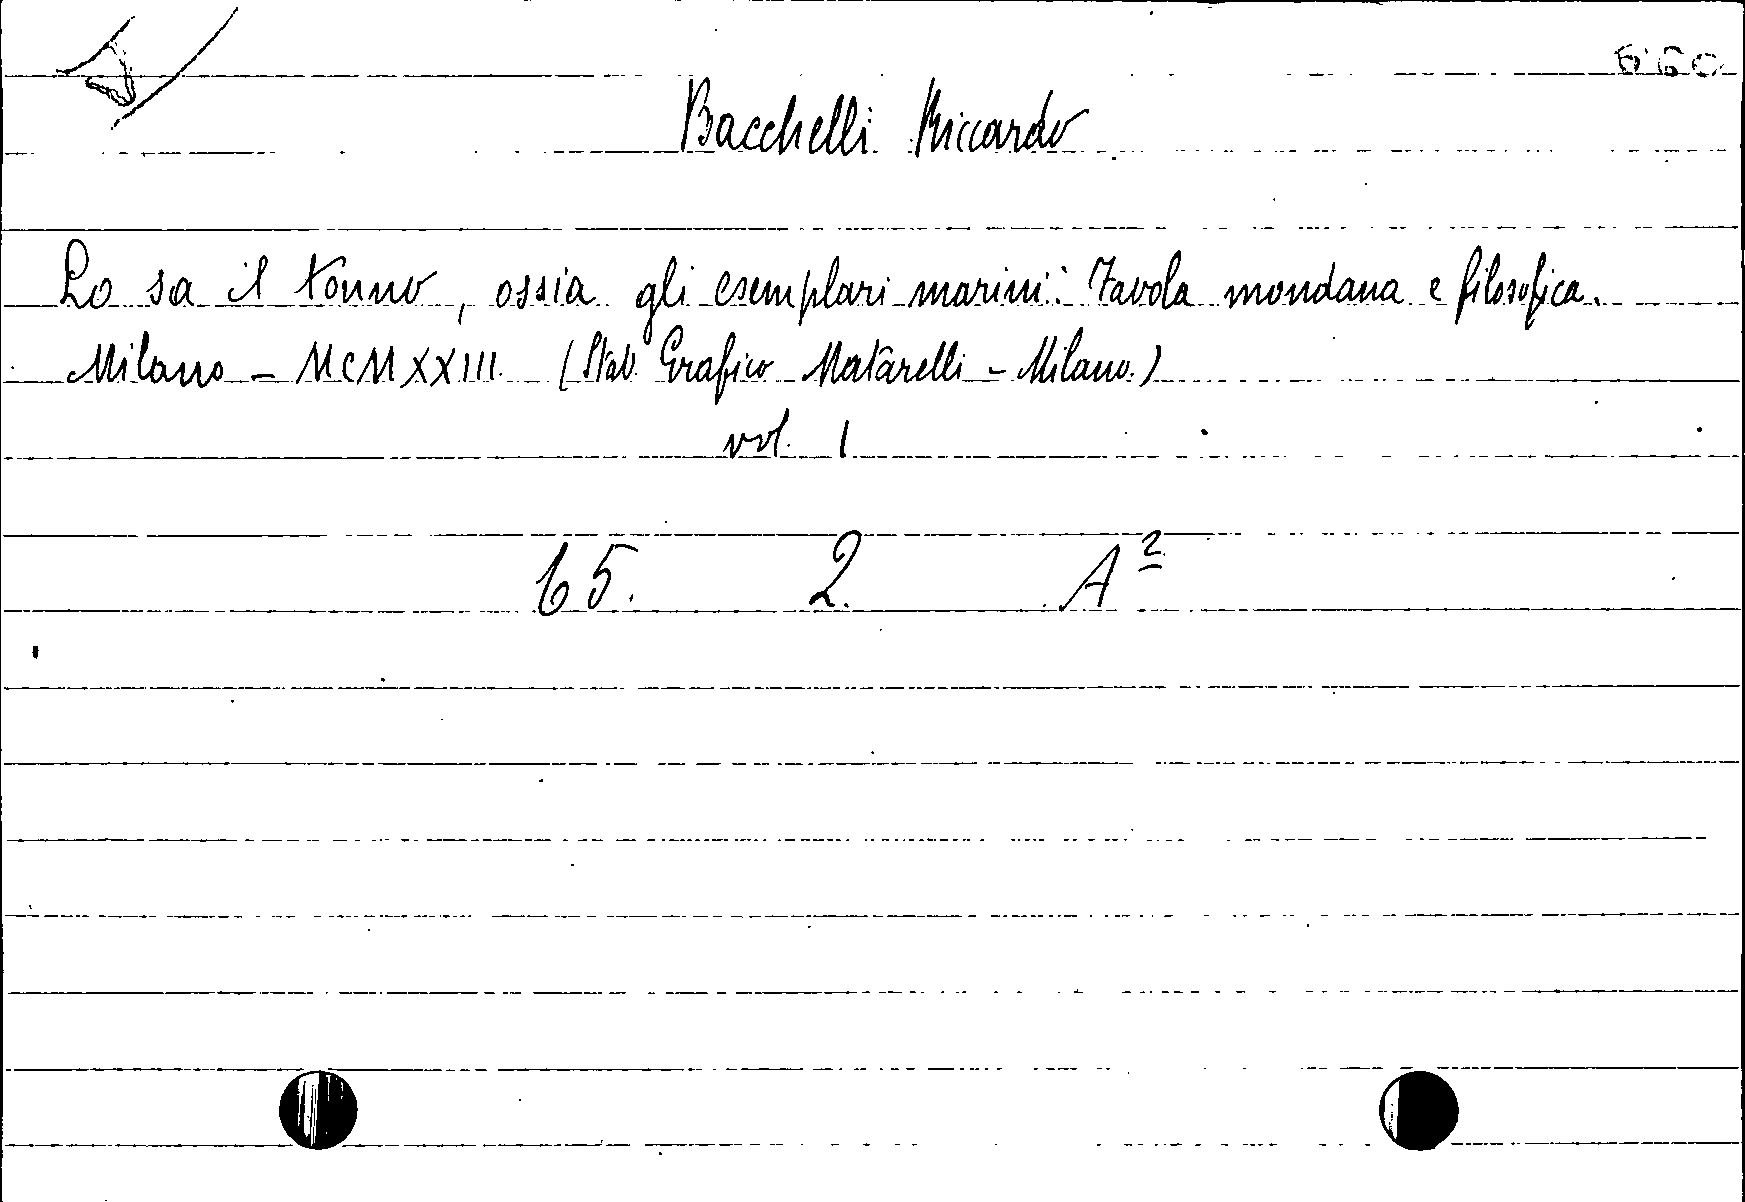 Bacchelli Riccardo
Lo sa il tonno, ossia gli esemplari marini: Favola mondana e filosofica.
Milano – MCMXXIII. (Stab. Grafico Matarelli – Milano.)
vol. 1
65. 2. A²